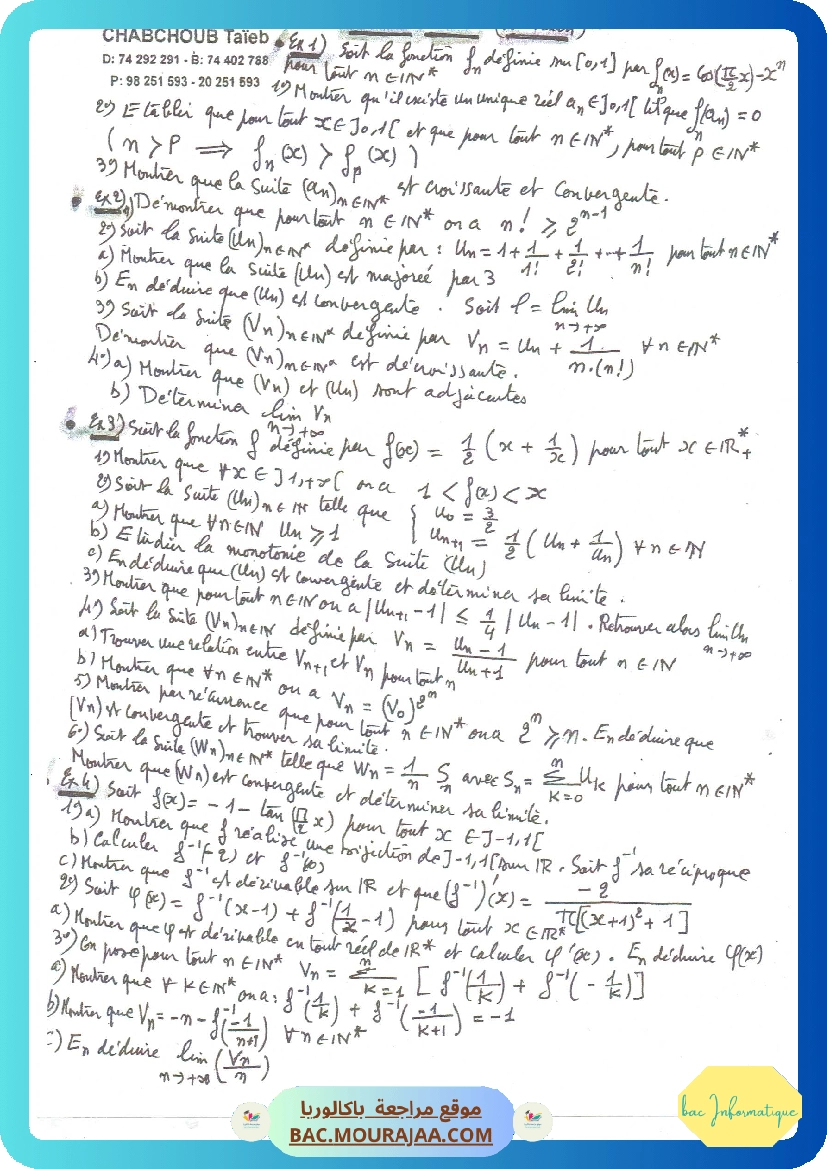 CHABCHOUB Taïeb
D: 74 292 291 - B: 74 402 788
P: 98 251 593 - 20 251 593
Ex 1) Soit la fonction fn définie sur [0,1] par fn(x) = cos(π/2 x) - x^n
pour tout n ∈ IN*
1°) Montrer qu'il existe un unique réel an ∈ ]0,1[ tq que fn(an) = 0
2°) Etablir que pour tout x ∈ ]0,1[ et que pour tout n ∈ IN*, pour tout p ∈ IN*
(n > p ⟹ fn(x) > fp(x))
3°) Montrer que la suite (an)n∈IN* est croissante et convergente.
Ex 2) 1) Démontrer que pour tout n ∈ IN* on a n! ≥ 2^(n-1)
2°) Soit la suite (Un)n∈IN* définie par : Un = 1 + 1/1! + 1/2! + ... + 1/n! pour tout n ∈ IN*
a) Montrer que la suite (Un) est majorée par 3
b) En déduire que (Un) est convergente. Soit l = lim Un n→+∞
3°) Soit la suite (Vn)n∈IN* définie par Vn = Un + 1/(n.(n!)) ∀ n ∈ IN*
Démontrer que (Vn)n∈IN* est décroissante.
4°) a) Montrer que (Vn) et (Un) sont adjacentes
b) Déterminer lim Vn n→+∞
Ex 3) Soit la fonction f définie par f(x) = 1/2 (x + 1/x) pour tout x ∈ IR*+
1) Montrer que ∀x ∈ ]1,+∞[ on a 1 < f(x) < x
2°) Soit la suite (Un)n∈IN telle que { U0 = 3/2
Un+1 = 1/2 (Un + 1/Un) ∀ n ∈ IN
a) Montrer que ∀n ∈ IN Un ≥ 1
b) Etudier la monotonie de la suite (Un)
c) En déduire que (Un) est convergente et déterminer sa limite.
3°) Montrer que pour tout n ∈ IN on a |Un+1 - 1| ≤ 1/4 |Un - 1|. Retrouver alors lim Un n→+∞
4°) Soit la suite (Vn)n∈IN définie par Vn = (Un - 1)/(Un + 1) pour tout n ∈ IN
a) Trouver une relation entre Vn+1 et Vn pour tout n
b) Montrer que ∀n ∈ IN* on a Vn = (V0)^2^n
5°) Montrer par récurrence que pour tout n ∈ IN* on a 2^n ≥ n. En déduire que
(Vn) est convergente et trouver sa limite.
6°) Soit la suite (Wn)n∈IN* telle que Wn = 1/n Sn avec Sn = Σ(k=0 à n) Uk pour tout n ∈ IN*
Montrer que (Wn) est convergente et déterminer sa limite.
Ex 4) Soit f(x) = -1 - tan(π/2 x) pour tout x ∈ ]-1,1[
1°) a) Montrer que f réalise une bijection de ]-1,1[ sur IR. Soit f⁻¹ sa réciproque
b) Calculer f⁻¹(-2) et f⁻¹(0)
c) Montrer que f⁻¹ est dérivable sur IR et que (f⁻¹)'(x) = -2/(π[(x+1)² + 1])
2°) Soit φ(x) = f⁻¹(x-1) + f⁻¹(1/x - 1) pour tout x ∈ IR*
a) Montrer que φ est dérivable en tout réel de IR* et calculer φ'(x). En déduire φ(x)
3°) On pose pour tout n ∈ IN* Vn = Σ(k=1 à n) [f⁻¹(1/k) + f⁻¹(-1/k)]
a) Montrer que ∀ k ∈ IN* on a : f⁻¹(1/k) + f⁻¹(-1/(k+1)) = -1
b) Montrer que Vn = -n - f⁻¹(-1/(n+1)) ∀ n ∈ IN*
c) En déduire lim n→+∞ (Vn/n)
bac Informatique
موقع مراجعة باكالوريا
BAC.MOURAJAA.COM